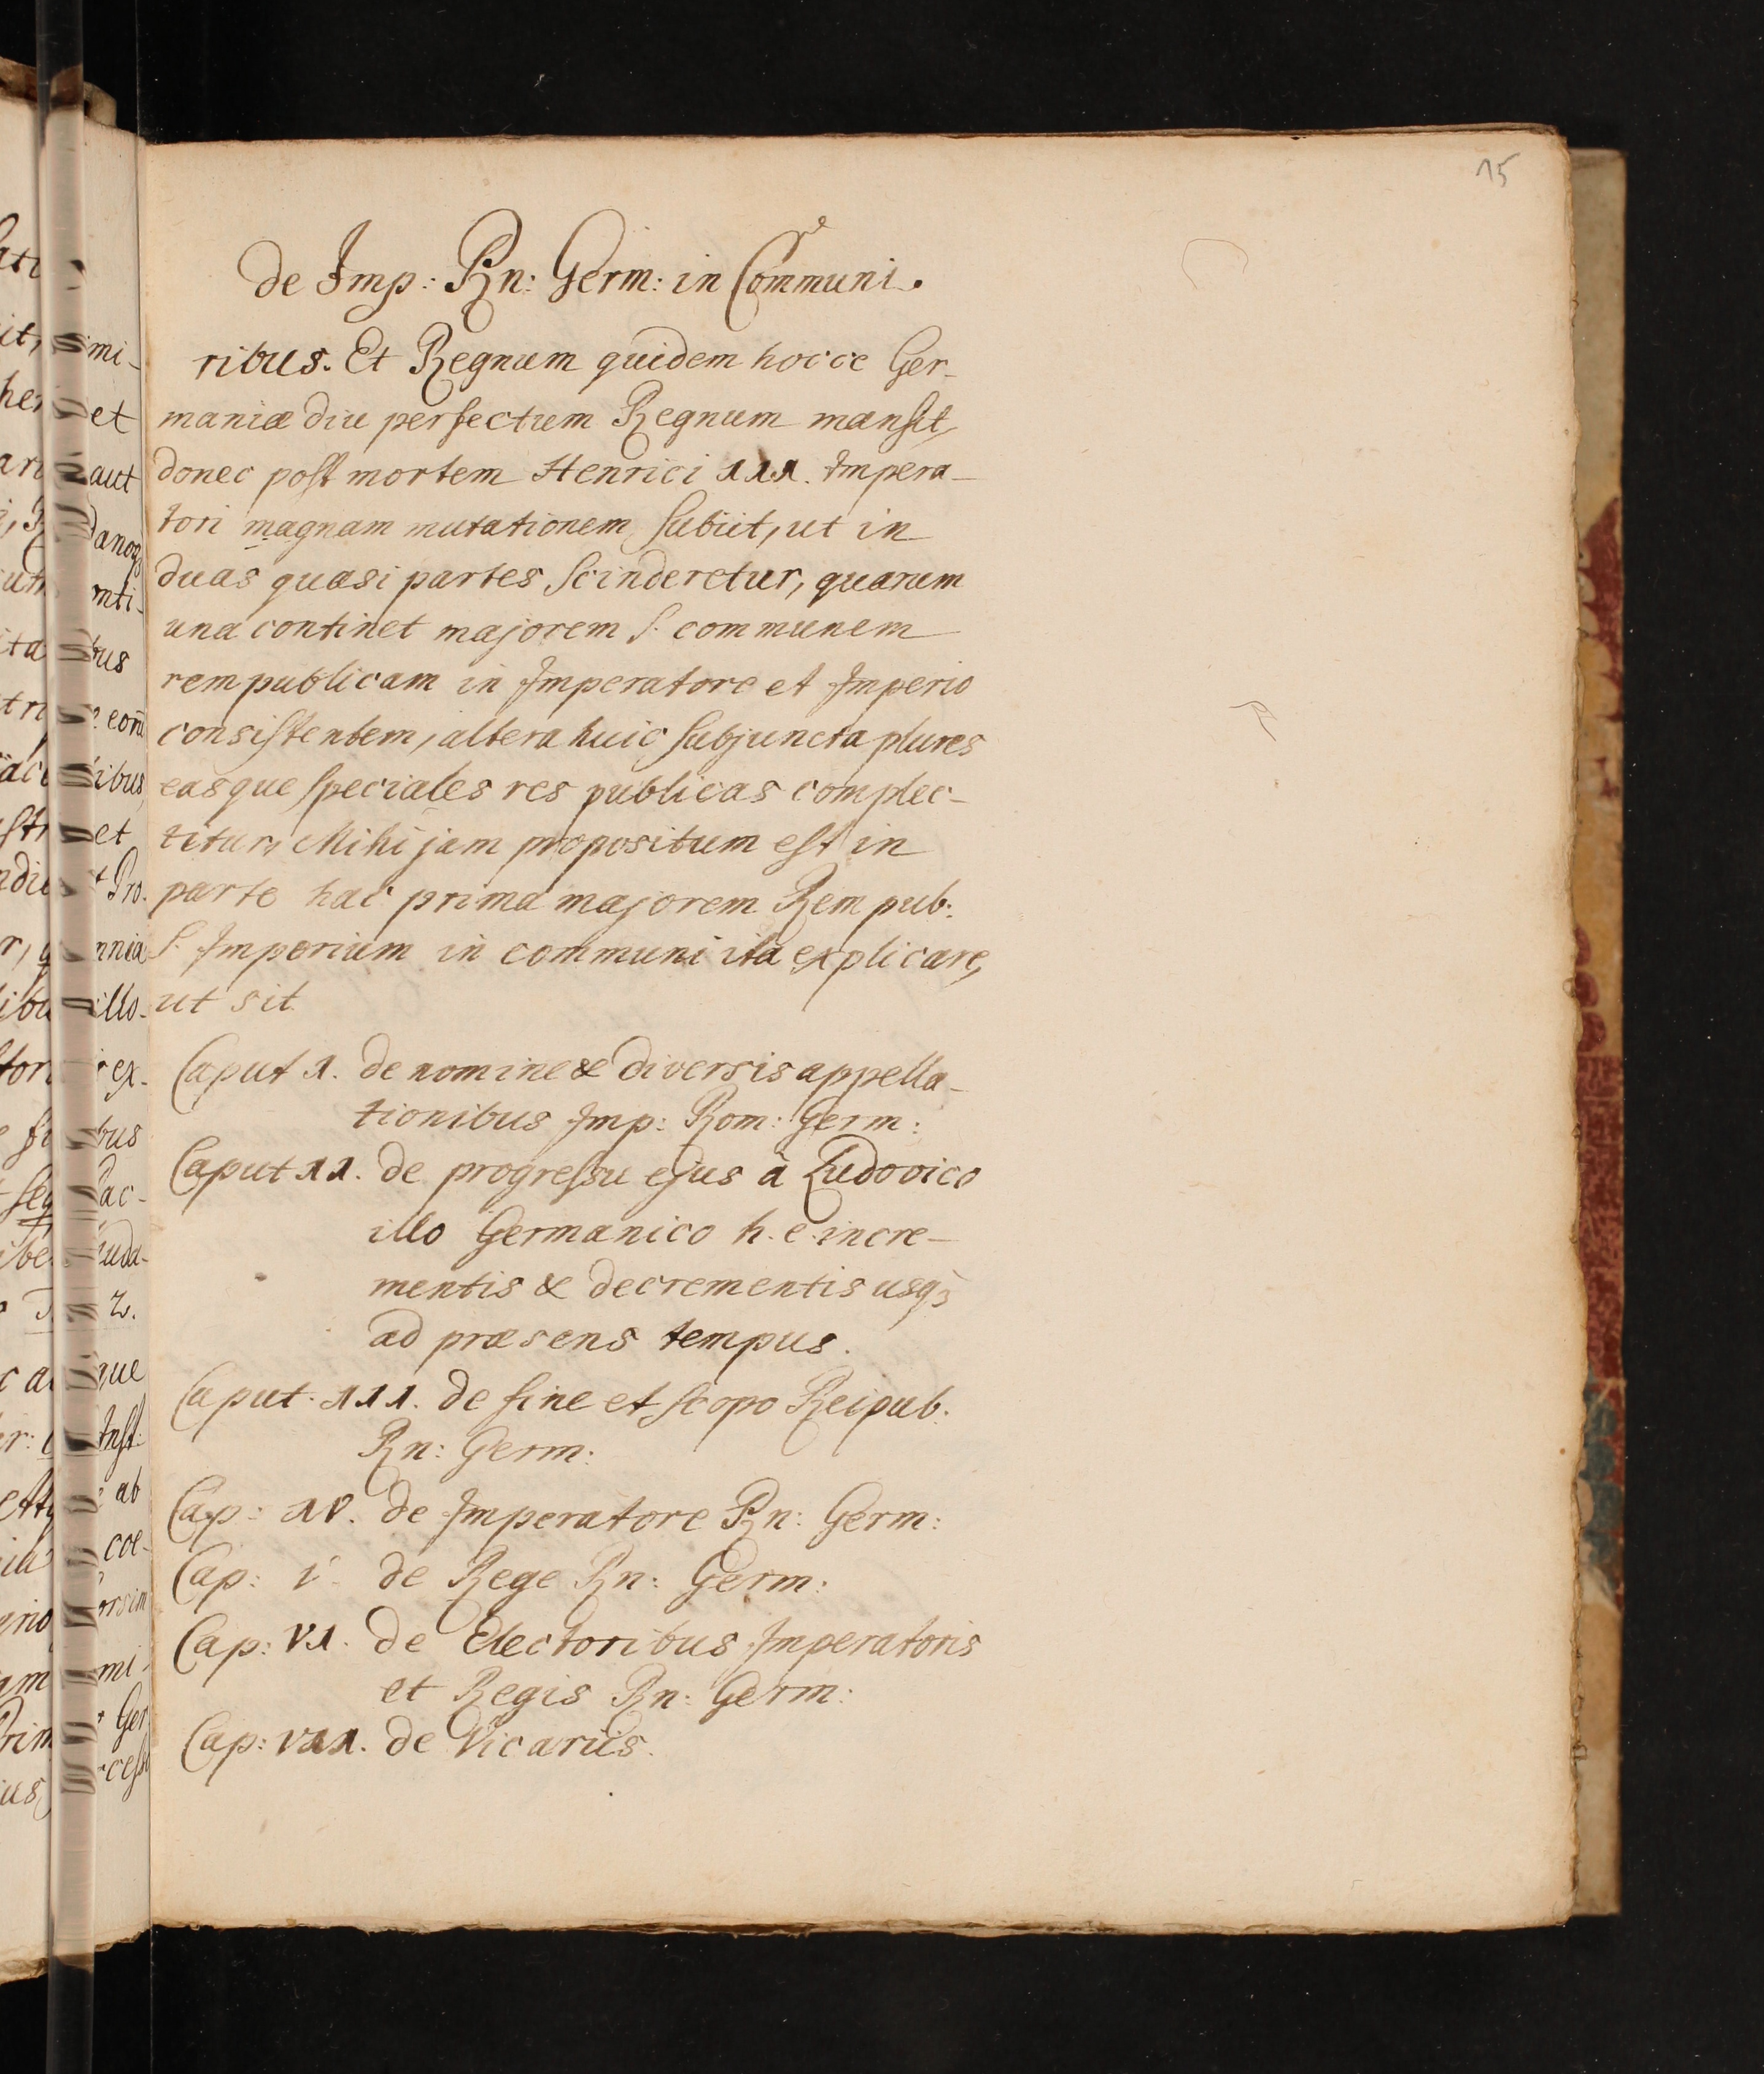 15
de Imp: Rn: Germ: in Communi.
ribus. Et Regnum quidem hocce Ger-
maniæ diu perfectum Regnum mansit,
donec post mortem Henrici III. Impera-
tori magnam mutationem subiit, ut in
duas quasi partes scinderetur, quarum
una continet majorem s. communem
rempublicam in Imperatore et Imperio
consistentem, altera huic subjuncta plures
easque speciales res publicas complec-
titur, Mihi jam propositum est in
parte hac prima majorem Rem pub:
s. Imperium in communi ita explicare,
ut sit
Caput I. de nomine & diversis appella-
tionibus Imp: Rom: Germ:
Caput II. de progressu ejus à Ludovico
illo Germanico h. e. incre-
mentis & decrementis usq3
ad præsens tempus.
Caput. III. de fine et scopo Reipub:
Rn: Germ:
Cap: IV. de Imperatore Rn: Germ:
Cap: V. de Rege Rn: Germ:
Cap: VI. de Electoribus Imperatoris
et Regis Rn: Germ:
Cap: VII. de Vicariis.